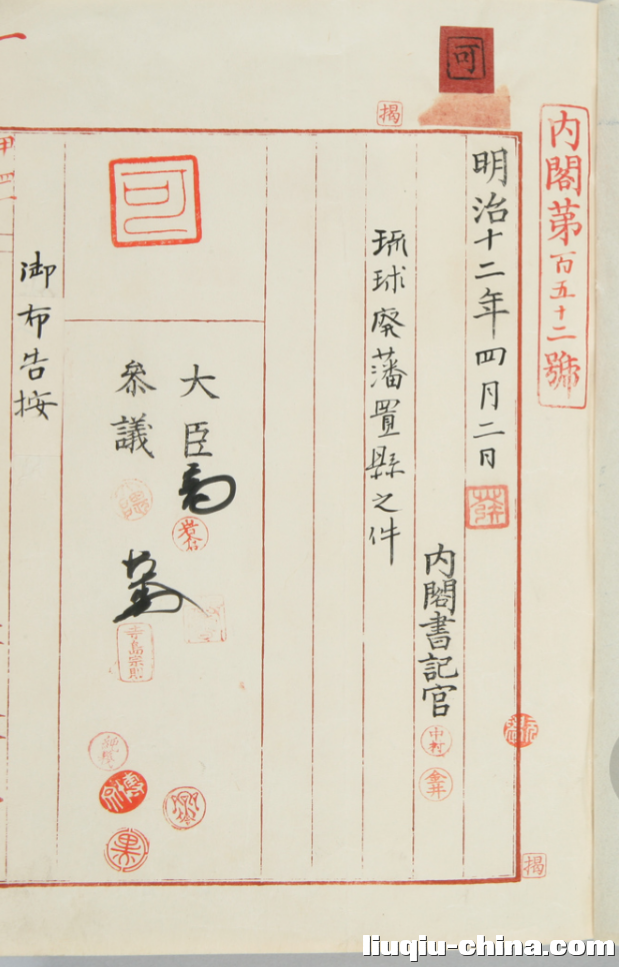 内閣第百五十二號
可
揭
明治十二年四月二日
内閣書記官
中村
金井
琉球廢藩置縣之件
大臣
參議
寺島宗則
可
御布告按
揭
liuqiu-china.com